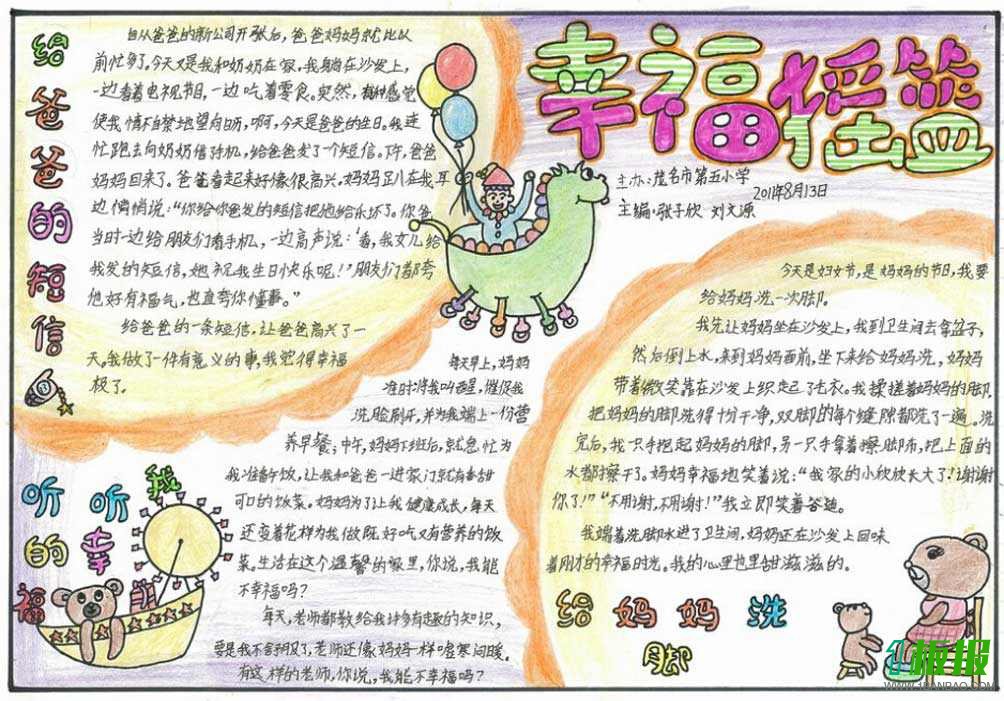 幸福摇篮
主办:茂名市第五小学
2011年8月13日
主编:张子欣 刘文源
给爸爸的短信
自从爸爸的新公司开张后,爸爸妈妈就比以
前忙多了。今天又是我和奶奶在家,我躺在沙发上,
一边看着电视节目,一边吃着零食。突然,感觉
使我情不自禁地望向日历,啊,今天是爸爸的生日。我连
忙跑去向奶奶借手机,给爸爸发了个短信。下午,爸爸
妈妈回来了。爸爸看起来好像很高兴。妈妈趴在我耳
边悄悄说:“你给你爸发的短信把他给乐坏了。你爸
当时一边给朋友们看手机,一边高声说:‘看,我女儿给
我发的短信,她祝我生日快乐呢!’朋友们都夸
他好有福气,也直夸你懂事。”
给爸爸的一条短信,让爸爸高兴了一
天。我做了一件有意义的事,我觉得幸福
极了。
听听我的幸福
每天早上,妈妈
准时将我叫醒,催促我
洗脸刷牙,并为我端上一份营
养早餐;中午,妈妈下班后,就急忙为
我准备午饭,让我和爸爸一进家门就有香甜
可口的饭菜。妈妈为了让我健康成长,每天
还变着花样为我做既好吃又有营养的饭
菜。生活在这个温馨的家里,你说,我能
不幸福吗?
每天,老师都教给我许多有趣的知识,
要是我不舒服了,老师还像妈妈一样嘘寒问暖。
有这样的老师,你说,我能不幸福吗?
今天是妇女节,是妈妈的节日,我要
给妈妈洗一次脚。
我先让妈妈坐在沙发上,我到卫生间去拿盆子,
然后倒上水,来到妈妈面前,坐下来给妈妈洗,妈妈
带着微笑靠在沙发上织起了毛衣。我揉搓着妈妈的脚,
把妈妈的脚洗得十分干净,双脚的每个缝隙都洗了一遍。洗
完后,我一只手把起妈妈的脚,另一只手拿着擦脚布,把上面的
水都擦干了。妈妈幸福地笑着说:“我家的小欣欣长大了!谢谢
你了!”“不用谢,不用谢!”我立即笑着答道。
我端着洗脚水进了卫生间,妈妈还在沙发上回味
着刚才的幸福时光。我的心里也里甜滋滋的。
给妈妈洗
脚
板报
WWW.1BANBAO.COM